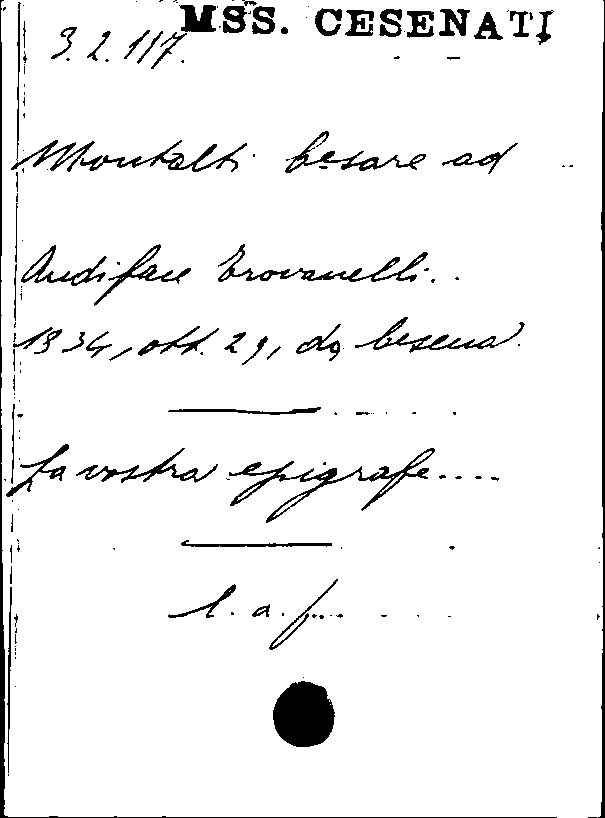 MSS. CESENATI
3.2.117.
Montalti Cesare ad
Audiface Trovanelli.
1834, ott. 29, da Cesena
La vostra epigrafe....
l. a. f.